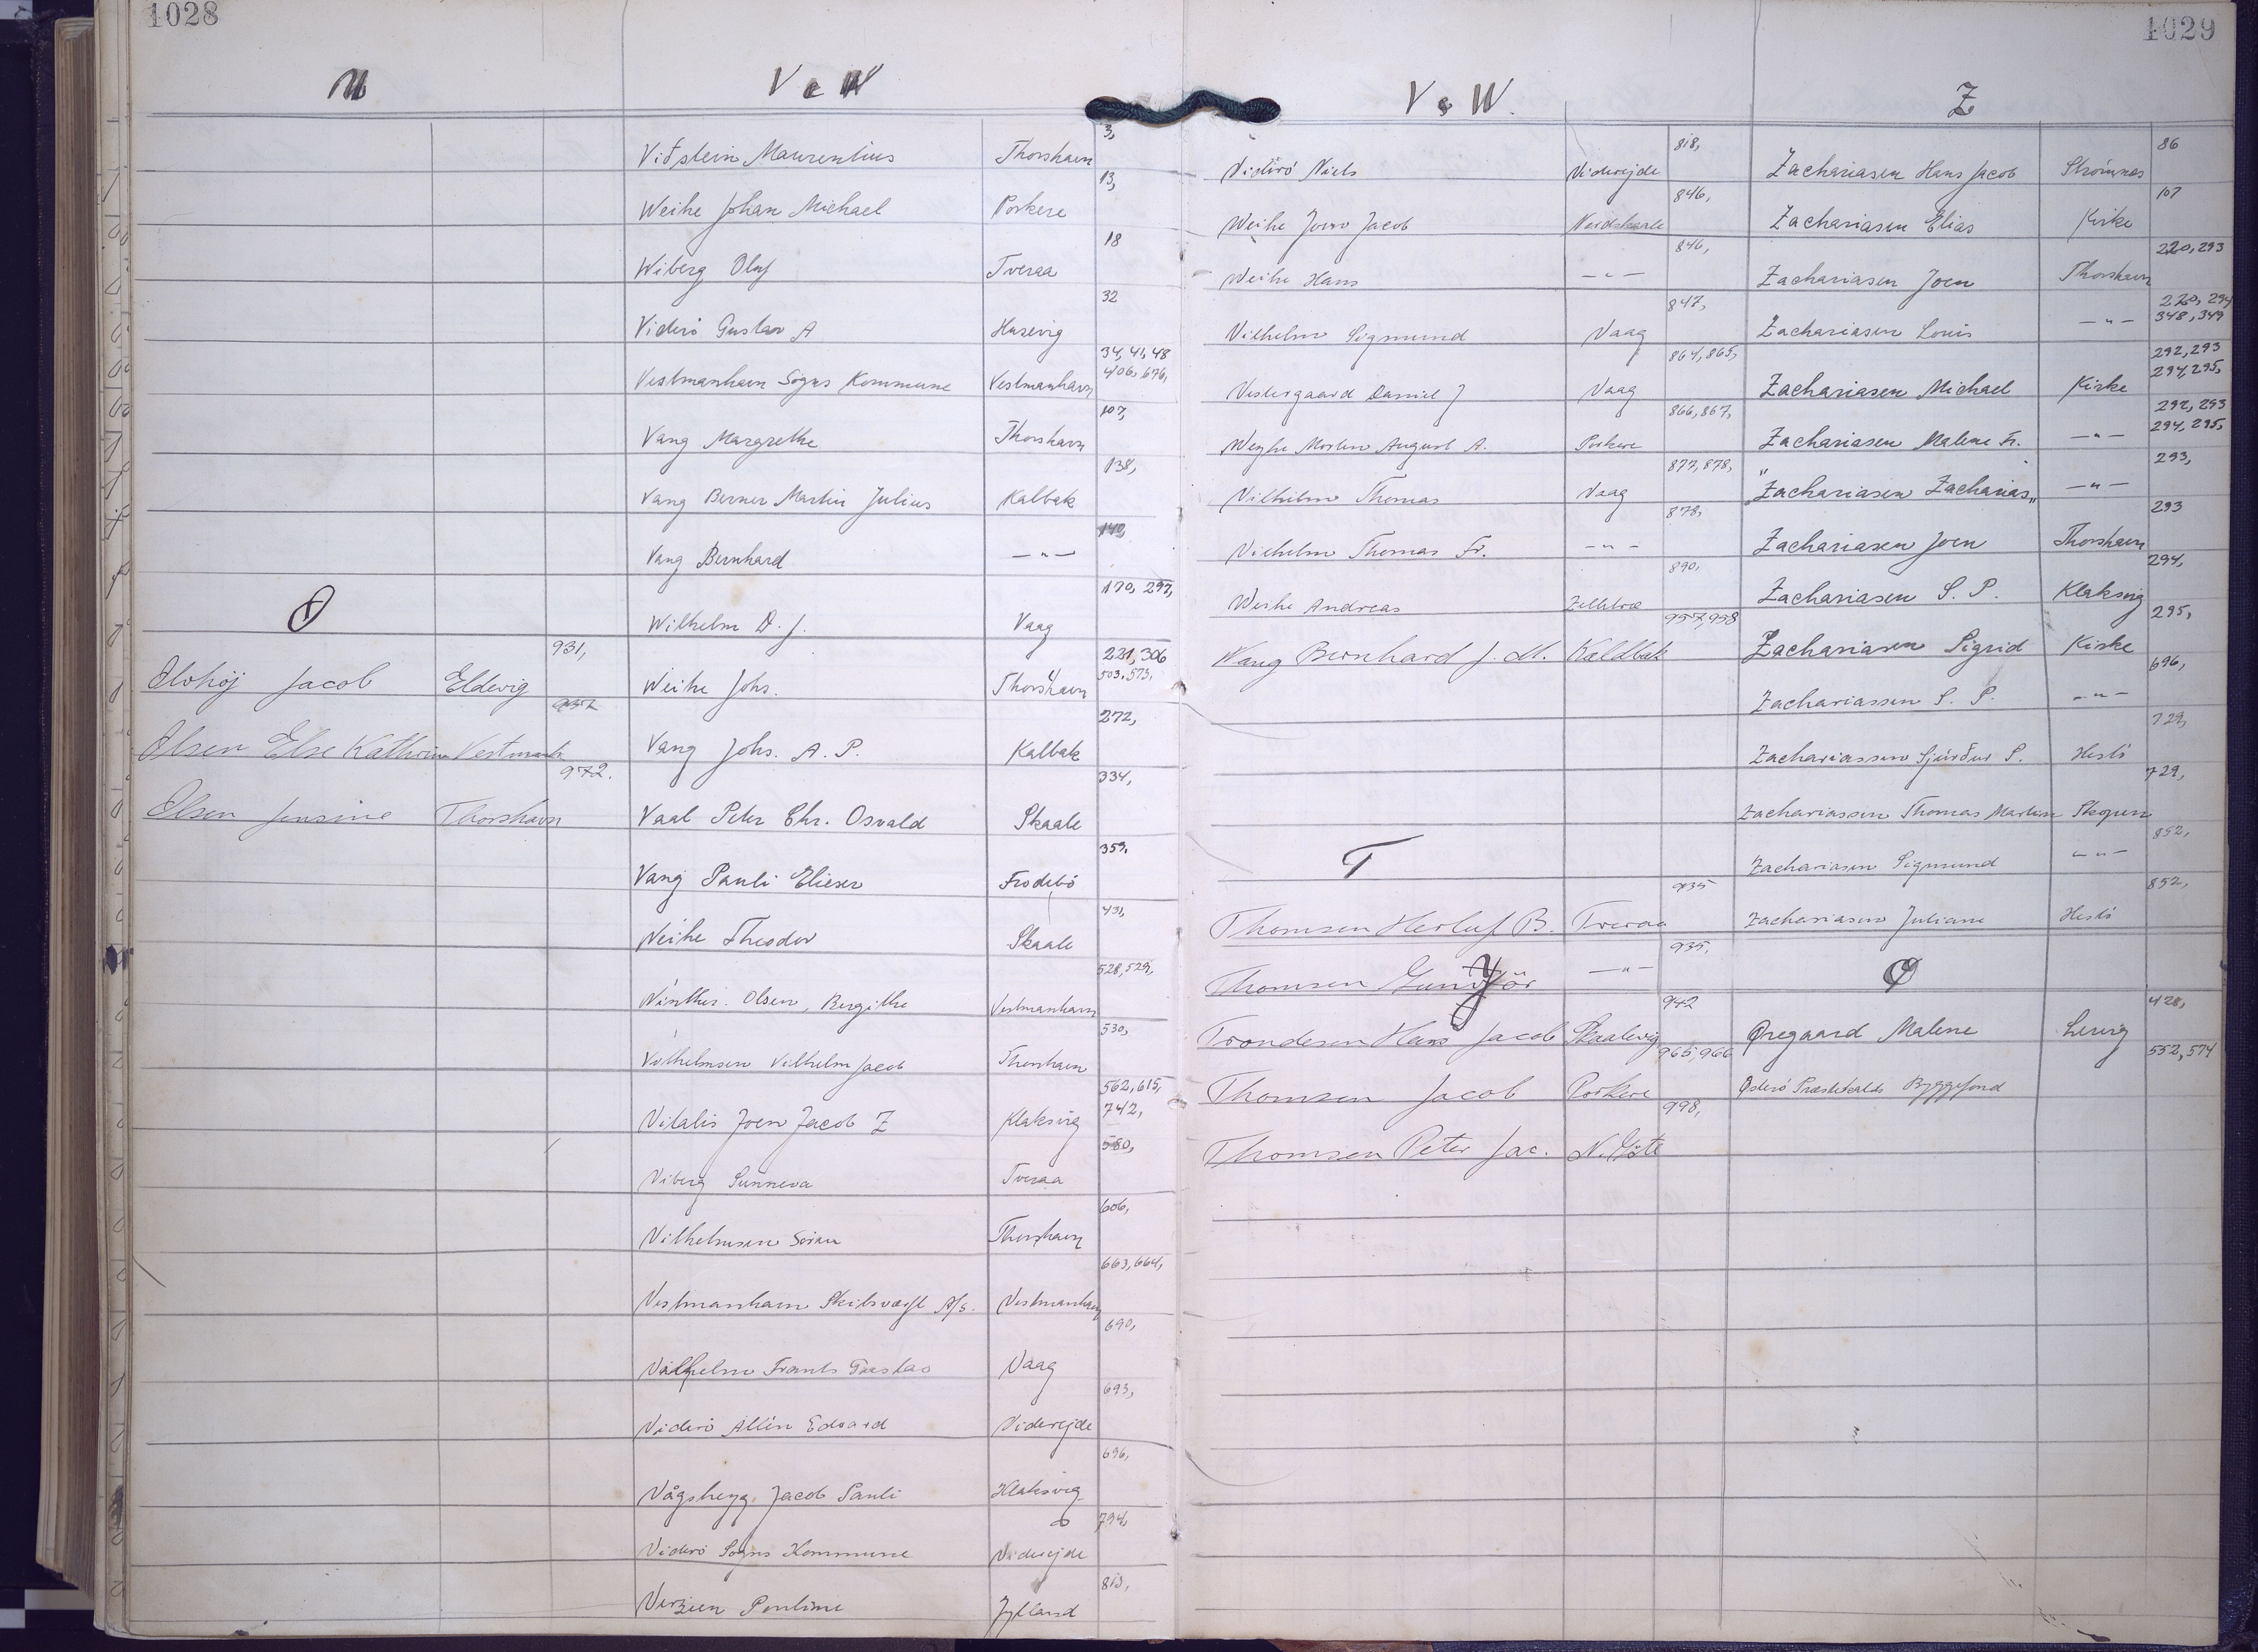 1028
U
V & W
O
931,
Olvhöj Jacob Eldevig
937
Olsen Else Kathrine Vestmanh
972.
Olsen Jensine Thorshavn
3,
Vitstein Maurentius Thorshavn
13,
Weihe Johan Michael Porkere
18
Wiberg Oluf Tveraa
32
Viderö Gustav A Husevig
34, 41, 48
406, 676,
Vestmanhavn Sogns Kommune Vestmanhavn
107,
Vang Margrethe Thorshavn
138,
Vang Berner Martin Julius Kalbak
140,
Vang Bernhard — " —
170, 297,
Wilhelm D. J. Vaag
221, 306
503, 573,
Weihe Johs. Thorshavn
272,
Vang Johs. A. P. Kalbak
334,
Vaal Peter Chr. Osvald Skaale
359,
Vang Pauli Elieser Frodebö
431,
Weihe Theodor Skaale
528, 529,
Winther-Olsen, Bergithe Vestmanhavn
530,
Vilhelmsen Vilhelm Jacob Thorshavn
562, 615,
742,
Vitalis Joen Jacob Z Klaksvig
580,
Viberg Sunneva Tveraa
606,
Vilhelmsen Thorshavn
663, 664,
Vestmanhavn Skibsværft A/S. Vestmanhavn
690,
Vilhelm Frants Gustav Vaag
693,
Viderö Allin Edvard Viderejde
696,
Vågsheyg, Jacob Pauli Klaksvig
794,
Viderö Sogns Kommune Viderejde
813,
Pouline Jylland
1029
V & W.
818,
Viderö Niels Viderejde
846,
Weihe Joen Jacob Nordskaale
846,
Weihe Hans — " —
847,
Vilhelm Sigmund Vaag
864, 865,
Vestergaard Daniel J Vaag
866, 867,
Weyhe Morten August A. Porkere
877, 878,
Vilhelm Thomas Vaag
878,
Vilhelm Thomas Fr. — " —
890,
Weihe Andreas
957, 958
Wang Bernhard J. M. Kaldbak
T
935
Thomsen Herluf B. Tveraa
935,
Thomsen — " —
942
Trondesen Hans Jacob Skaalevig
965, 966
Thomsen Jacob Porkere
998,
Thomsen Peter Jac. N. Göte
Z
86
Zachariasen Hans Jacob Strömnæs
107
Zachariasen Elias Kirke
220, 293
Zachariasen Joen Thorshavn
220, 294
348, 349
Zachariasen Louis — " —
292, 293
294, 295,
Zachariasen Michael Kirke
292, 293
294, 295,
Zachariasen Malene Fr. — " —
293,
"Zachariasen Zacharias" — " —
293
Zachariasen Joen Thorshavn
294,
Zachariasen S. P. Klaksvig
295,
Zachariasen Sigrid Kirke
696,
Zachariassen S. P. — " —
729,
Zachariassen Sjúrður S. Hestö
729,
Zachariassen Thomas Martin Skopun
852,
Zachariasen Sigmund — " —
852,
Zachariasen Juliane Hestö
Ø
428,
Øregaard Malene Lervig
552, 574
Østerö Præstekalds Byggefond